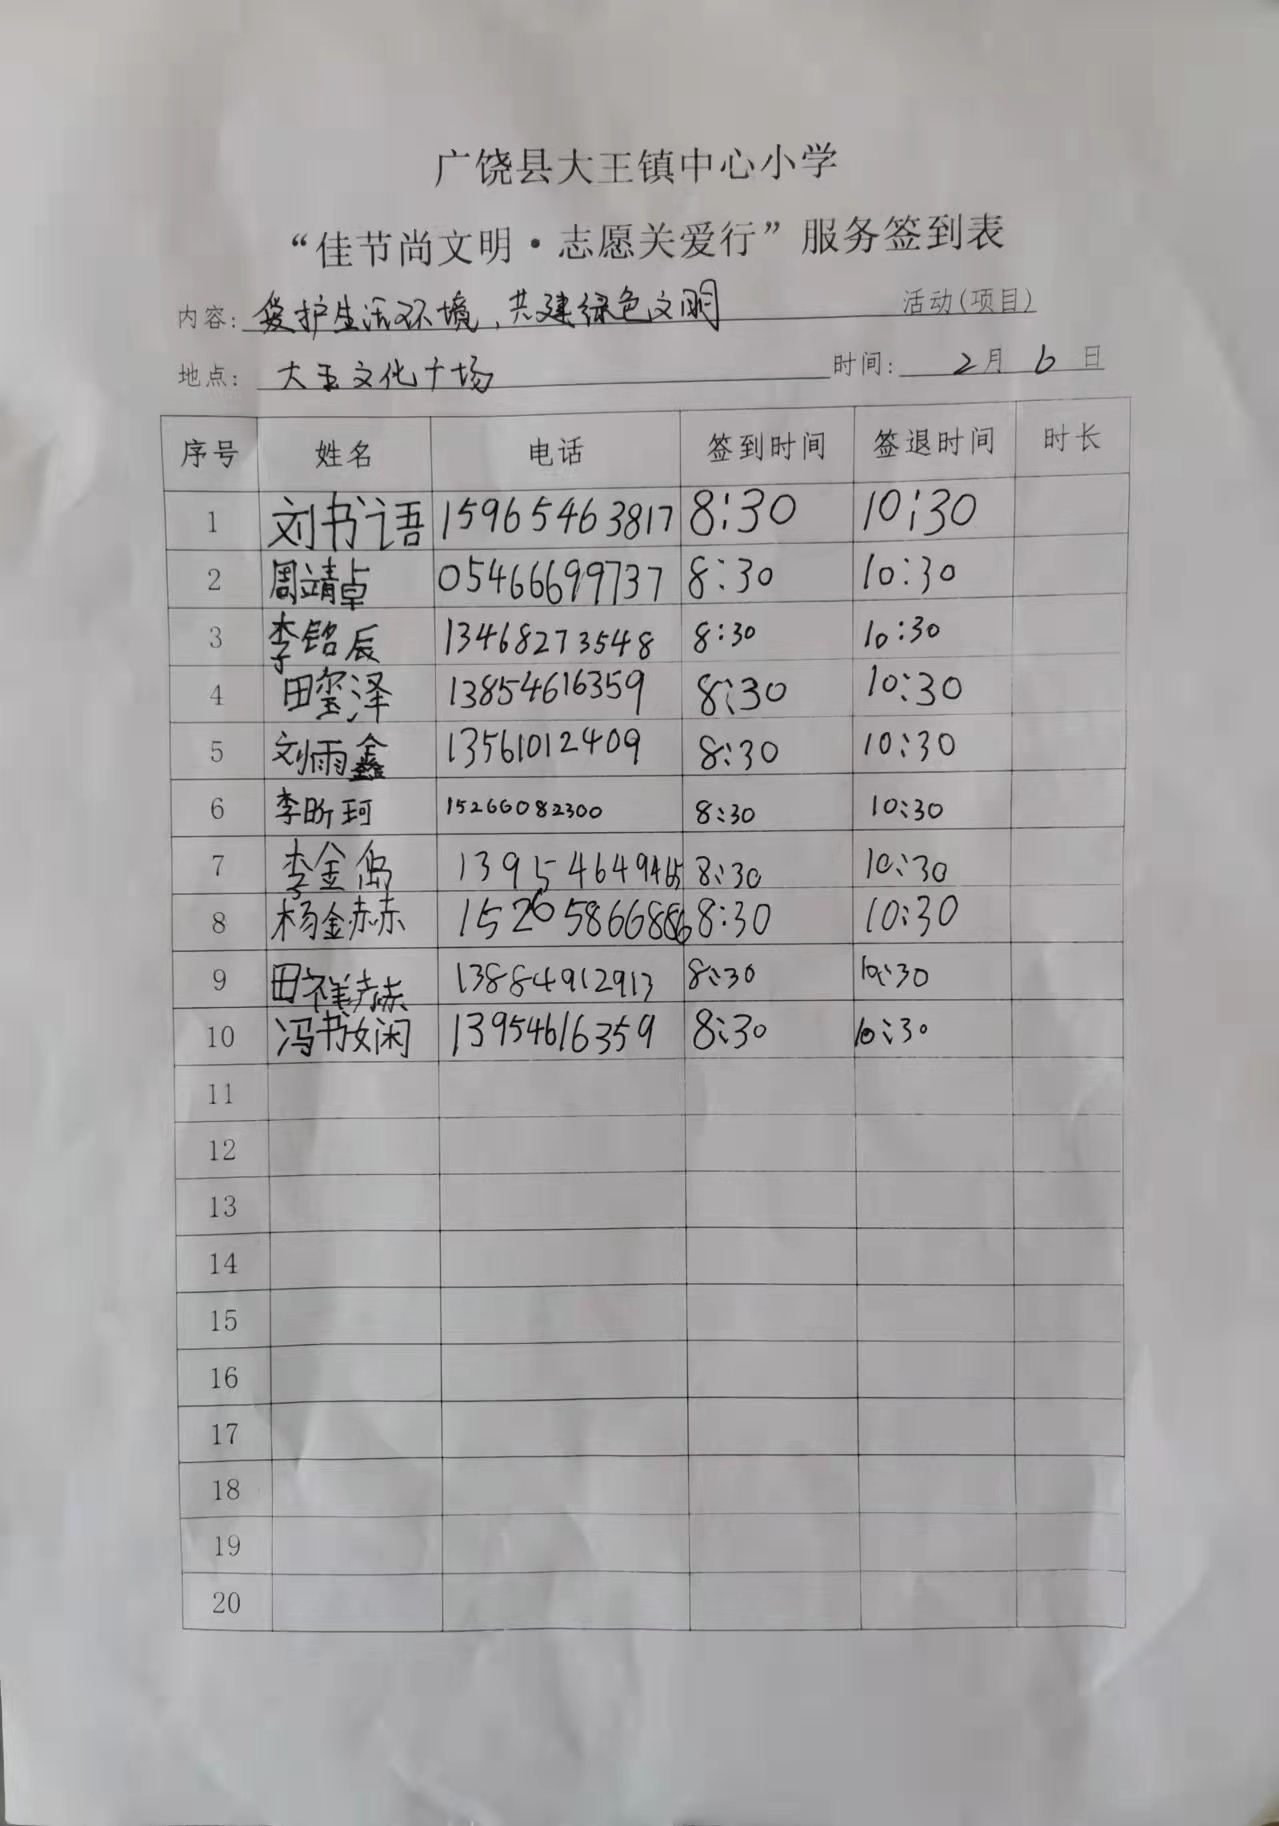 广饶县大王镇中心小学
“佳节尚文明·志愿关爱行”服务签到表
内容: 爱护生活环境、共建绿色文明 活动(项目)
地点: 大王文化广场 时间: 2月6日
序号 姓名 电话 签到时间 签退时间 时长
1 刘书语 15965463817 8:30 10:30
2 周靖卓 05466699737 8:30 10:30
3 李铭辰 13468273548 8:30 10:30
4 田玺泽 13854616359 8:30 10:30
5 刘雨鑫 13561012409 8:30 10:30
6 李昕珂 15266082300 8:30 10:30
7 李金 8:30 10:30
8 杨金赫 15265866886 8:30 10:30
9 田祥赫 13884912913 8:30 10:30
10 冯书娴 13954616359 8:30 10:30
11
12
13
14
15
16
17
18
19
20